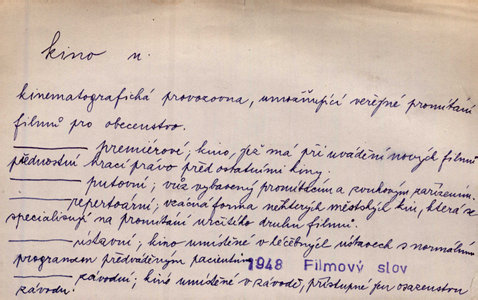 kino n.
kinematografická provozovna, umožňující veřejné promítání
filmů pro obecenstvo.
premiérové; kino, jež má při uvádění nových filmů
přednostní hrací právo před ostatními kiny.
putovní; vůz vybavený promítacím a zvukovým zařízením.
repertoární; vzácná forma některých městských kin, která se
specialisují na promítání určitého druhu filmů.
ústavní; kino umístěné v léčebných ústavech s normálním
programem předváděným pacientům
1948 Filmový slov
závodní; kino umístěné v závodě, přístupné jen osazenstvu
závodu.